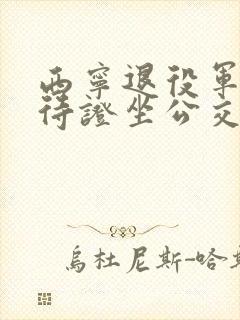 西寧退役軍
待證坐公交
烏杜尼斯-哈斯